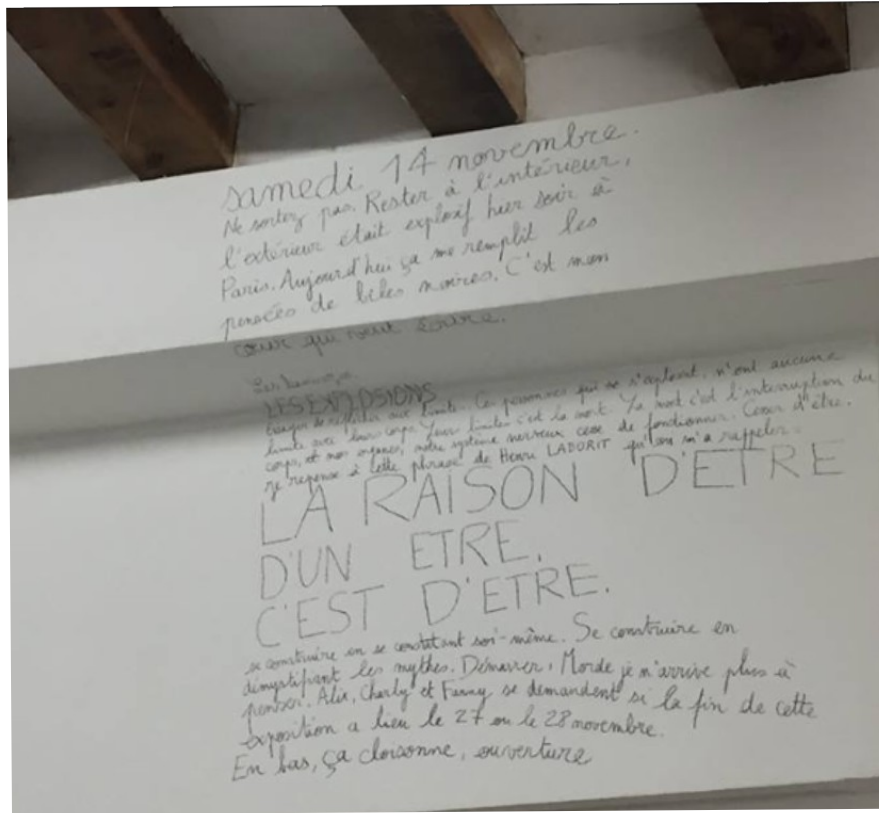 samedi 14 novembre.
Ne sortez pas. Rester à l'intérieur,
l'extérieur était explosif hier soir à
Paris. Aujourd'hui ça me remplit les
pensées de biles noires. C'est mon
cœur qui veut écrire.
LES EXPLOSIONS
aux limites. Ces personnes qui se n'ont aucune
limite avec leur corps. Leur limites c'est la mort. La mort c'est l'interruption du
corps, et nos organes, notre système nerveux cesse de fonctionner. Cesser d'être.
Je repense à cette phrase de Henri LABORIT qu'on m'a rappeler.
LA RAISON D'ETRE
D'UN ETRE,
C'EST D'ETRE.
se construire en se constatant soi-même. Se construire en
démystifiant les mythes. Démarrer, je n'arrive plus à
penser. Alix, Charly et Fanny se demandent si la fin de cette
exposition a lieu le 27 ou le 28 novembre.
En bas, ça cloisonne, ouverture